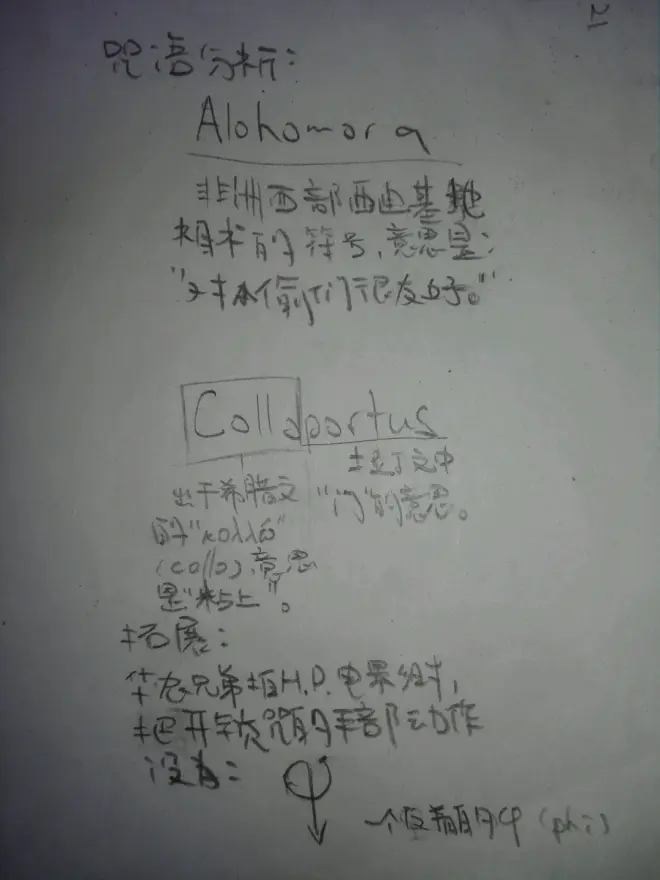 21
咒语分析:
Alohomora
非洲西部西迪基地
相术的符号,意思是:
"对小偷们很友好。"
Colloportus
出于希腊文
的"κολλώ"
(collo),意思
是"粘上"。
拉丁文中
"门"的意思。
拓展:
华农兄弟拍H.P.电影时,
把开锁咒的手部动作
设为:
一个反着的φ(phi)